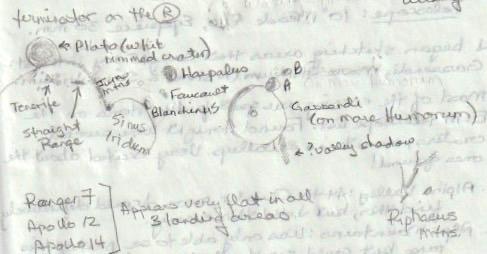 terminator on the Ⓡ
Plato (white
rimmed crater)
Jura
Mtns
Harpalus
Foucault
Blanchinus
B
A
Tenerife
Straight
Range
Sinus
Iridum
Gassendi
(on mare Humorum)
? valley shadow
Ranger 7
Apollo 12
Apollo 14
Appears very flat in all
3 landing areas
Riphaeus
Mtns.